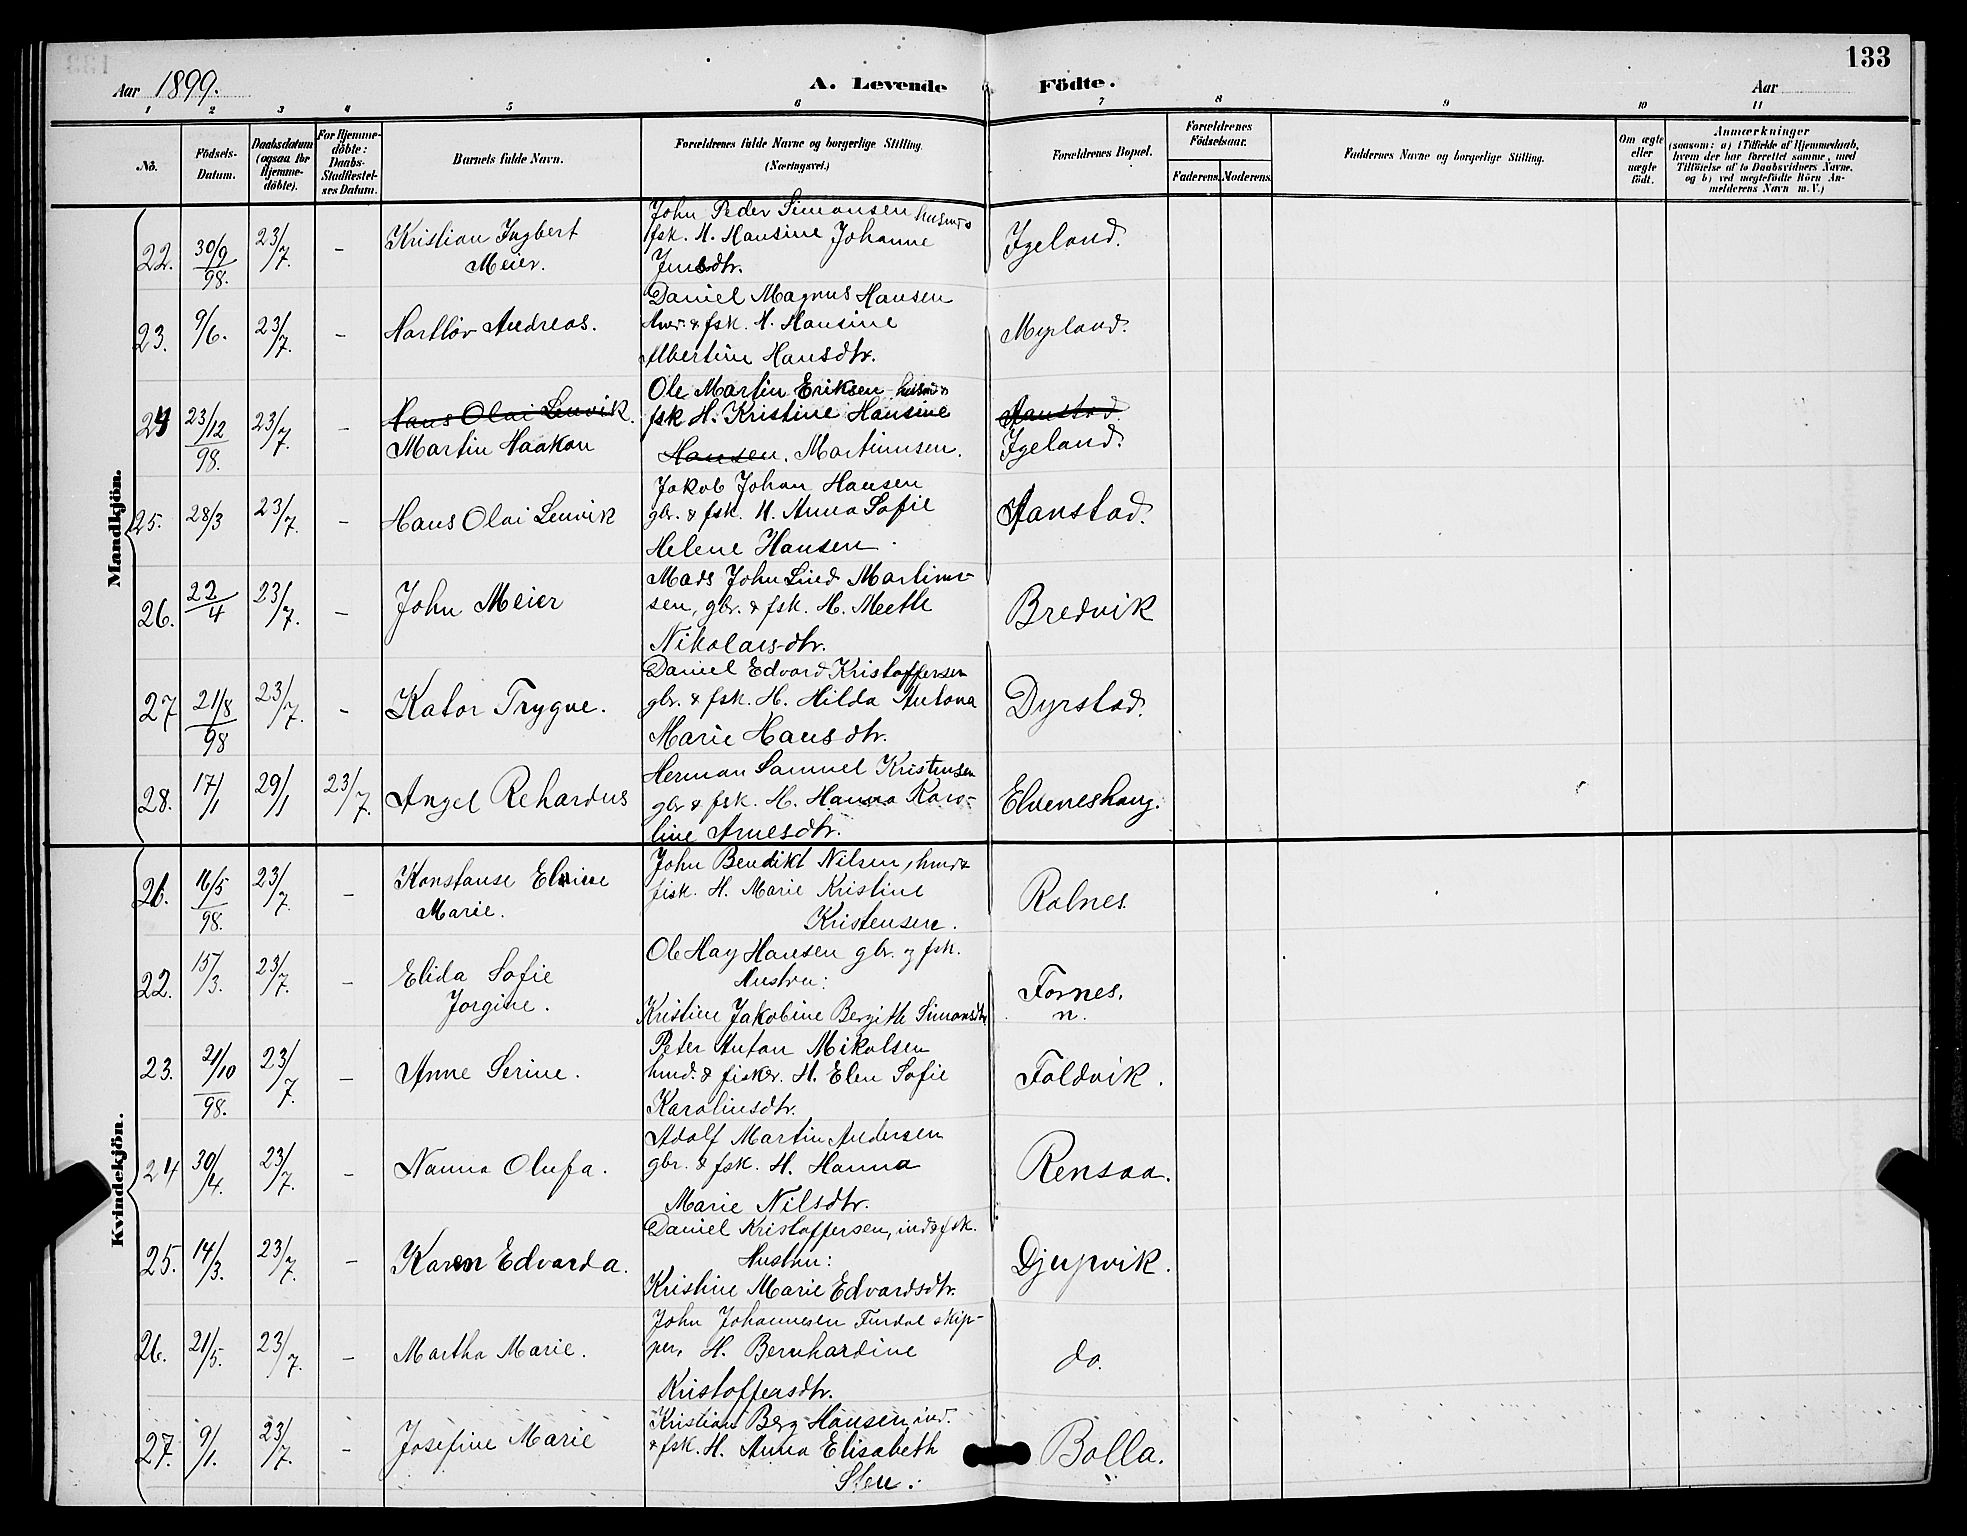 133
Aar 1899. A. Levende Födte. Aar
1 2 3 4 5 6 7 8 9 10 11
No. Födsels-Datum. Daabsdatum (ogsaa for Hjemme-döbte). For Hjemme-döbte: Daabs-Stadfæstel-ses Datum. Barnets fulde Navn. Forældrenes fulde Navne og borgerlige Stilling. (Næringsvei.) Forældrenes Bopæl. Forældrenes Födselsaar. Faderens. Moderens. Faddernes Navne og borgerlige Stilling. Om ægte eller uægte födt. Anmærkninger
(saasom: a) i Tilfælde af Hjemmedaab, hvem der har forrettet samme, med Tilföielse af to Daabsvidners Navne, og b) ved uægtefödte Börn An-melderens Navn m. V.)
Mandkjön.
John Peder Simonsen husm &
22. 30/9 98. 23/7. – Kristian Ingbert fsk. H. Hansine Johanne Igeland.
Meier. Jensdtr.
Daniel Magnus Hansen
23. 9/6. 23/7. – Hartløv Andreas. & fsk. H. Hansine Myrland.
Albertine Hansdtr.
Ole Martin Eriksen husmd &
24 23/12 98. 23/7. – Hans Olai Lenvik. fsk H. Kristine Hansine Aanstad
Martin Haakon Hansen. Martinusen. Igeland.
Jakob Johan Hansen
25. 28/3 23/7. – Hans Olai Lenvik gbr. & fsk. H. Anna Sofie Aanstad.
Helene Hansen.
Mads John Lind Martinu-
26. 22/4 23/7. – John Meier sen, gbr. & fsk. H. Meethe Bredvik
Nikolaisdtr.
Daniel Edvard Kristoffersen
27 21/8 98 23/7. – Kator Trygve. gbr. & fsk. H. Hilda Antona Dyrstad.
Marie Hansdtr.
Herman Samuel Kristensen
28. 17/1 29/1 23/7. Angel Rehardus gbr & fsk. H. Hanna Karo- Elveneshaug.
line Arnesdtr.
Kvindekjön.
John Bendikt Nilsen, hmd &
21. 16/5 98. 23/7. – Konstanse Elvine fisk. H. Marie Kristine Rolnes.
Marie. Kristensen.
Ole Hay Hansen gbr. og fsk.
22. 15/3. 23/7. – Elida Sofie Hustru: Fornes.
Jorgine. Kristine Jakobine Bergithe Simonsdtr. n.
Peter Anton Mikalsen
23. 21/10 98. 23/7. – Anne Serine. hmd. & fisker. H. Elen Sofie Foldvik.
Karolinsdtr.
Adolf Martin Andersen
24 30/4. 23/7. – Nanna Olufa. gbr. & fsk. H. Hanna Rensaa.
Marie Nilsdtr.
Daniel Kristoffersen, ind & fsk.
25. 14/3. 23/7. – Karen Edvarda. Hustru: Djupvik.
Kristine Marie Edvardsdtr.
John Johannesen Furdal skip-
26. 21/5. 23/7. – Martha Marie. per, H. Bernhardine do.
Kristoffersdtr.
Kristian Berg Hansen, ind.
27. 9/1. 23/7. – Josefine Marie & fsk. H. Anna Elisabeth Bolla.
Sten.